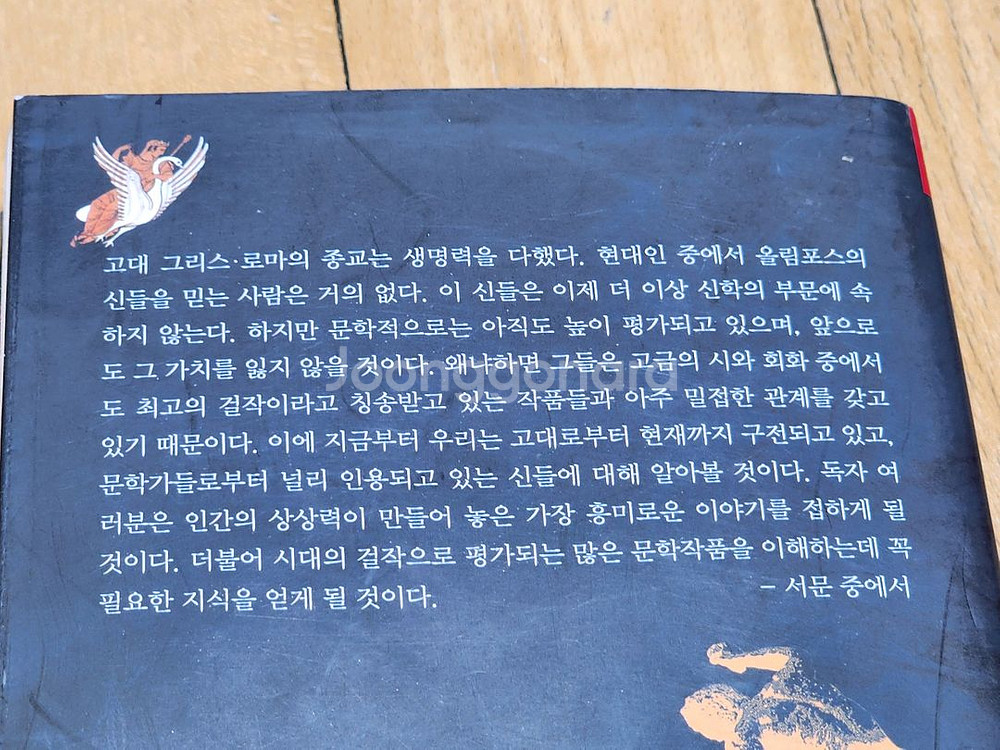 고대 그리스·로마의 종교는 생명력을 다했다. 현대인 중에서 올림포스의
신들을 믿는 사람은 거의 없다. 이 신들은 이제 더 이상 신학의 부문에 속
하지 않는다. 하지만 문학적으로는 아직도 높이 평가되고 있으며, 앞으로
도 그 가치를 잃지 않을 것이다. 왜냐하면 그들은 고금의 시와 회화 중에서
도 최고의 걸작이라고 칭송받고 있는 작품들과 아주 밀접한 관계를 갖고
있기 때문이다. 이에 지금부터 우리는 고대로부터 현재까지 구전되고 있고,
문학가들로부터 널리 인용되고 있는 신들에 대해 알아볼 것이다. 독자 여
러분은 인간의 상상력이 만들어 놓은 가장 흥미로운 이야기를 접하게 될
것이다. 더불어 시대의 걸작으로 평가되는 많은 문학작품을 이해하는데 꼭
필요한 지식을 얻게 될 것이다.
– 서문 중에서
Joonggonara